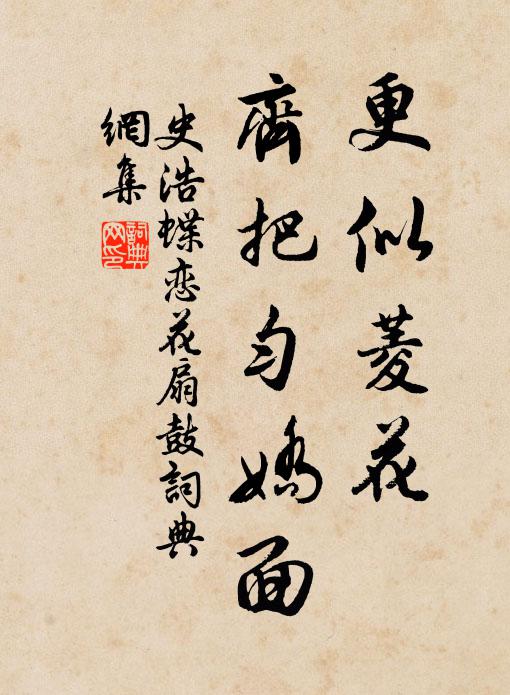 更似菱花
齊把勻嬌面
史浩蝶恋花扇鼓詞典
網集
詞典网印